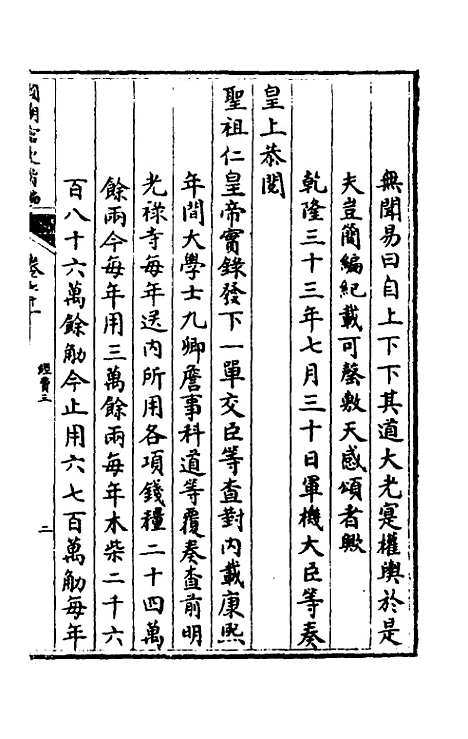 無聞易曰自上下下其道大光寔權輿於是
夫豈簡編紀載可罄敷天感頌者歟
乾隆三十三年七月三十日軍機大臣等奏
皇上恭閱
聖祖仁皇帝實錄發下一單交臣等查對內載康熙
年間大學士九卿詹事科道等覆奏查前明
光祿寺每年送內所用各項錢糧二十四萬
餘兩今每年用三萬餘兩每年木柴二千六
百八十六萬餘觔今止用六七百萬觔每年
國朝宮史續編
經費三
二